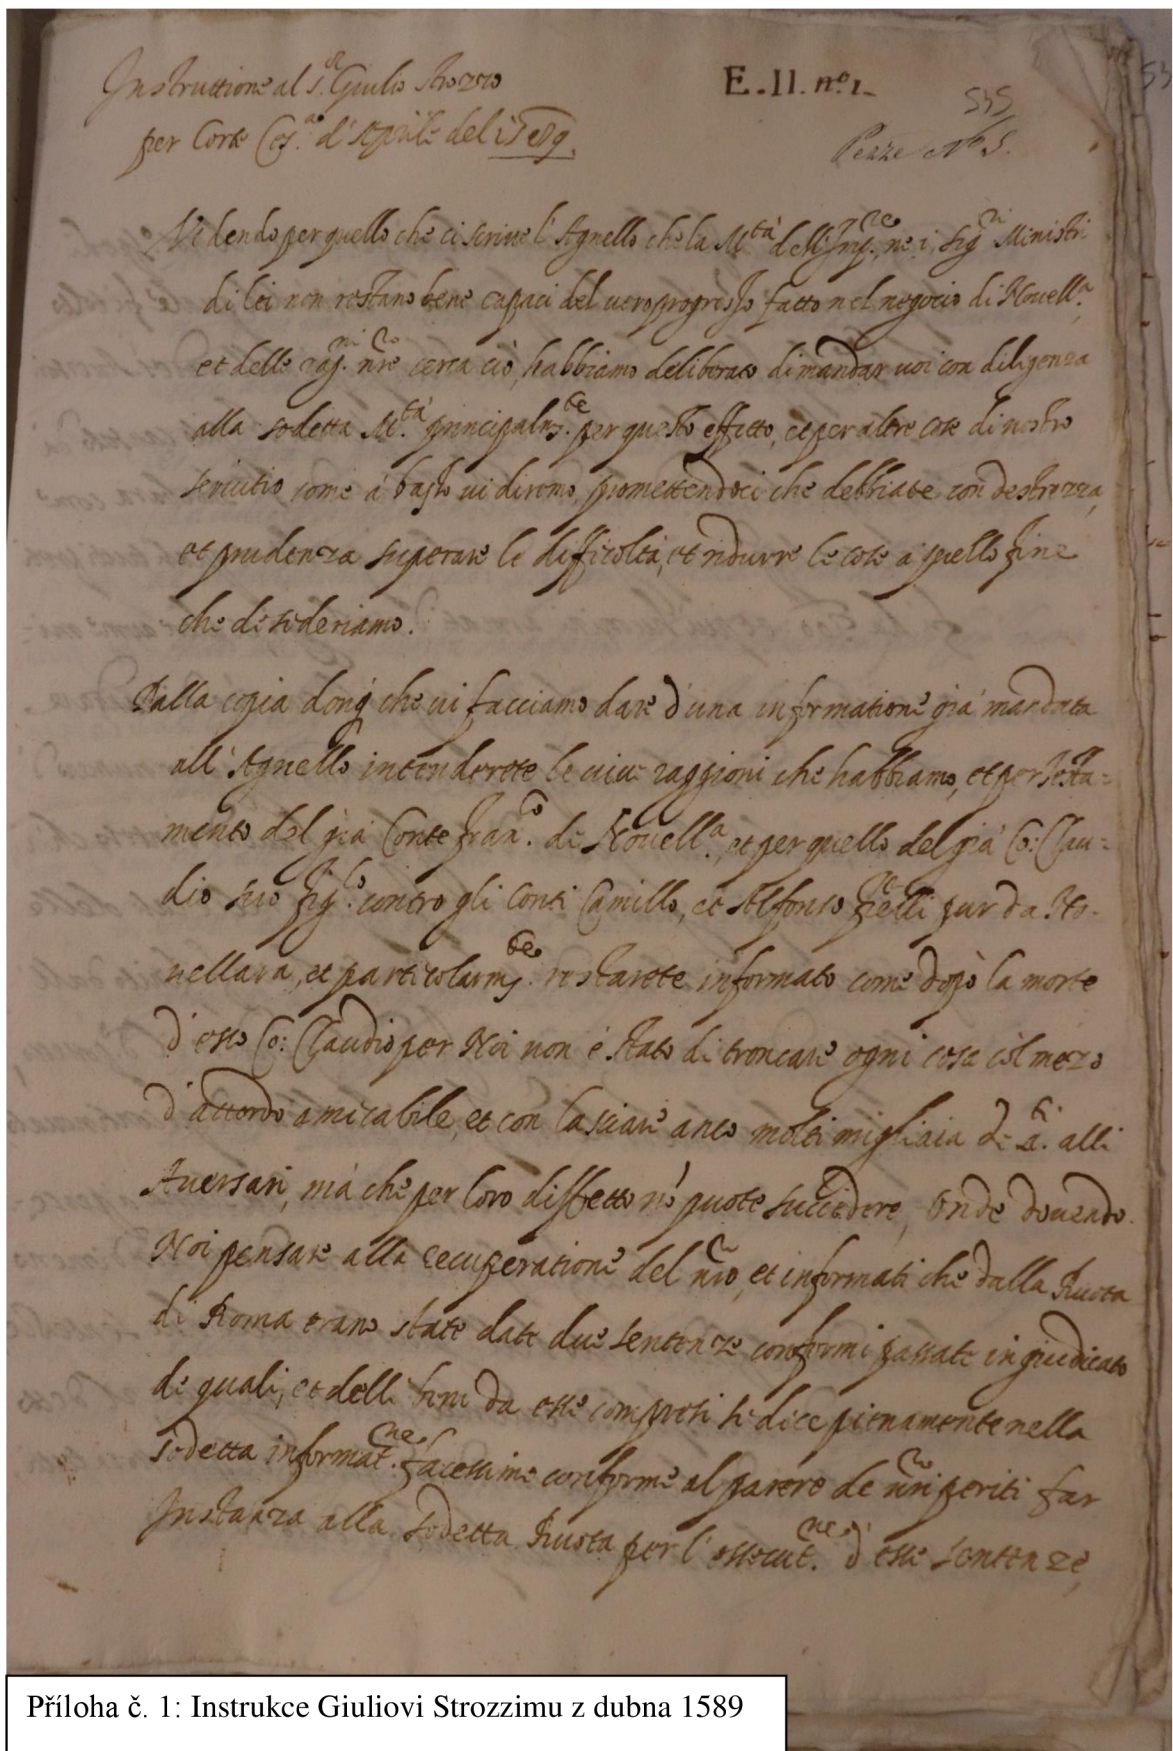 Instruttione al s.r Giulio Strozzo
per Corte Ces.a d'Aprile del 1589.
E. II. n.o 1.
535
Pezze N.o 5.
Vedendo per quello che ci scrive l'Agnello che la M.tà dell'Imp.re, ne i sig.ri Ministri
di lei non restano bene capaci del vero progresso fatto nel negocio di Novell.a,
et delle rag.ni nr̃e cerca ciò, habbiamo deliberato di mandar voi con diligenza
alla sodetta M.tà principalm.te per questo effetto, e per altre cose di nostro
servitio come à basso vi diremo, promettendoci che debbiate con destrezza,
et prudenza superare le difficoltà, et ridurre le cose à quello fine
che desideriamo.
Dalla copia donq. che vi facciamo dare d'una informatione già mandata
all'Agnello intenderete le vive raggioni che habbiamo, et per testa=
mento del già Conte Fran.co di Novell.a, et per quello del già Co: Clau=
dio suo fig.lo contro gli Conti Camillo, et Alfonso fr̃elli pur da No-
vellara, et particolarm.te restarete informato come dopò la morte
d'esso Co: Claudio per Noi non è stato di troncare ogni cosa col mezo
d'accordo amicabile, et con lasciare anco molti migliaia di alli
Aversari, mà che per loro diffetto nõ puote succedere, Onde dovendo
Noi pensare alla recuperatione del nr̃o, et informati che dalla Ruota
di Roma erano state date due sentenze conformi passate in giudicato
de quali, et delli beni da esse compresi si dice pienamente nella
sodetta informat.ne, facessimo conforme al parere de nr̃i periti far
Instanza alla sodetta Ruota per l'essecut.ne d'esse sentenze,
Příloha č. 1: Instrukce Giuliovi Strozzimu z dubna 1589